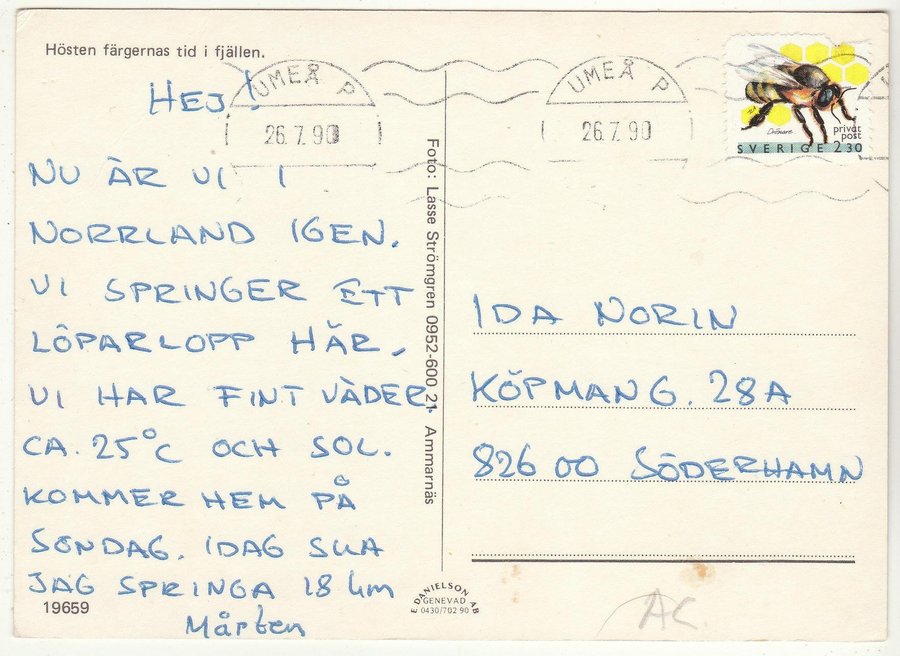 Hösten färgernas tid i fjällen.
HEJ!
NU ÄR VI I
NORRLAND IGEN.
VI SPRINGER ETT
LÖPARLOPP HÄR.
VI HAR FINT VÄDER.
CA. 25°C OCH SOL.
KOMMER HEM PÅ
SÖNDAG. IDAG SKA
JAG SPRINGA 18 km
Mårten
19659
Foto: Lasse Strömgren 0952-600 21. Ammarnäs
E. DANIELSON AB
GENEVAD
0430/702 90
UMEÅ P
26.7.90
UMEÅ P
26.7.90
Drönare
privat
post
SVERIGE 2.30
IDA NORIN
KÖPMANG. 28A
826 00 SÖDERHAMN
AC.